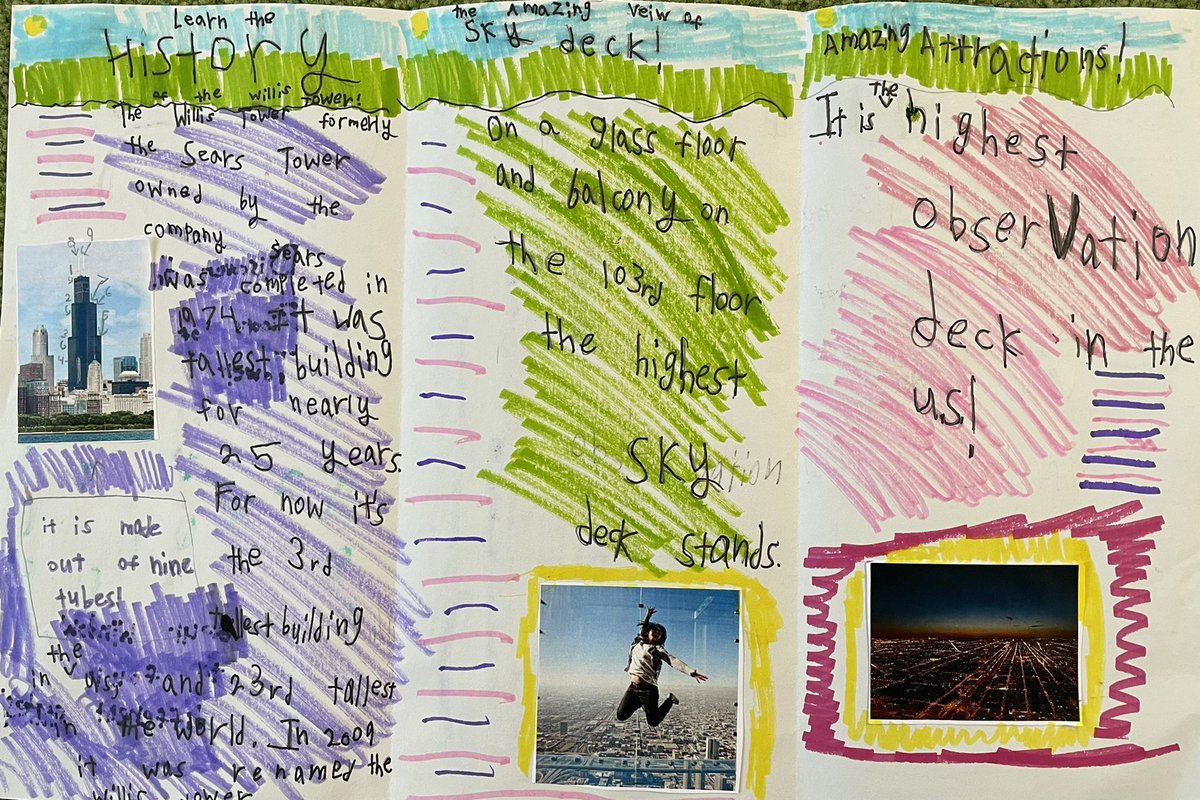 Learn the
HiSTORY
of the willis Tower!
The Willis Tower formerly
the Sears Tower
owned by the
company Sears
was completed in
1974. It was
tallest building
for nearly
25 Years.
For now it's
the 3rd
tallest building
in the US, and 23rd tallest
in the World. In 2009
it was renamed the
Willis Tower
it is made
out of nine
tubes!
the Amazing Veiw of
SKY deck!
On a glass floor
and balcony on
the 103rd floor
the highest
SKY
deck stands.
Amazing Attractions!
It is the highest
obserVation
deck in the
us!